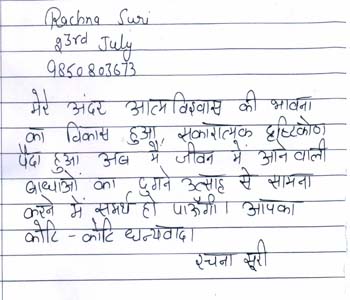 Rachna Suri
23rd July
9850803673
मेरे अंदर आत्मविश्वास की भावना
का विकास हुआ, सकारात्मक दृष्टिकोण
पैदा हुआ अब मैं, जीवन में आने वाली
बाधाओं का दुगने उत्साह से सामना
करने में समर्थ हो पाऊँगी। आपका
कोटि - कोटि धन्यवाद।
रचना सूरी